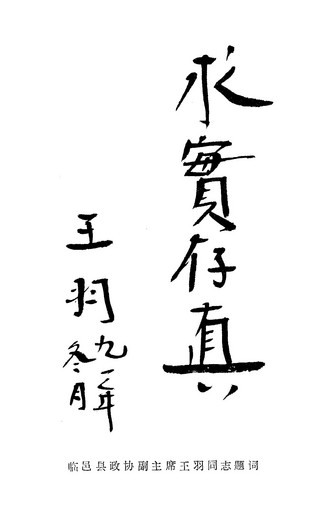 求實存真
王羽
九一年
冬月
临邑县政协副主席王羽同志题词